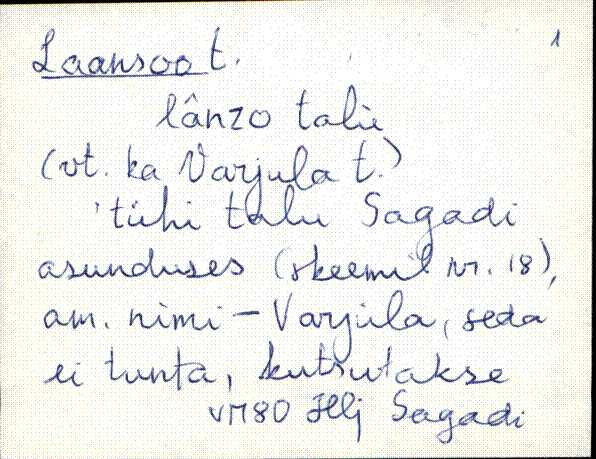 Laansoo t. 1
lânzo talu
(vt. ka Varjula t.)
'tühi talu Sagadi
asunduses (skeemil nr. 18),
am. nimi – Varjula, seda
ei tunta, kutsutakse
VM80 Hlj Sagadi